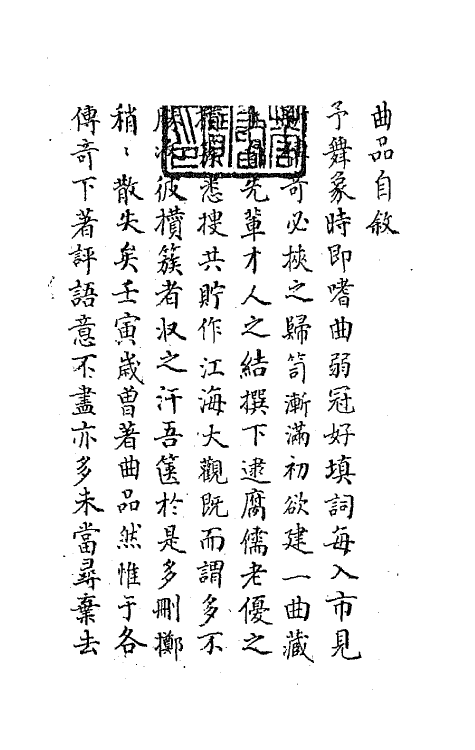 曲品自敘
予舞象時即嗜曲弱冠好填詞每入市見
奇必挾之歸笥漸滿初欲建一曲藏
先輩才人之結撰下逮腐儒老優之
悉搜共貯作江海大觀既而謂多不
彼攢簇者収之汗吾篋於是多刪擲
稍〻散失矣壬寅歲曾著曲品然惟于各
傳奇下著評語意不盡亦多未當尋棄去